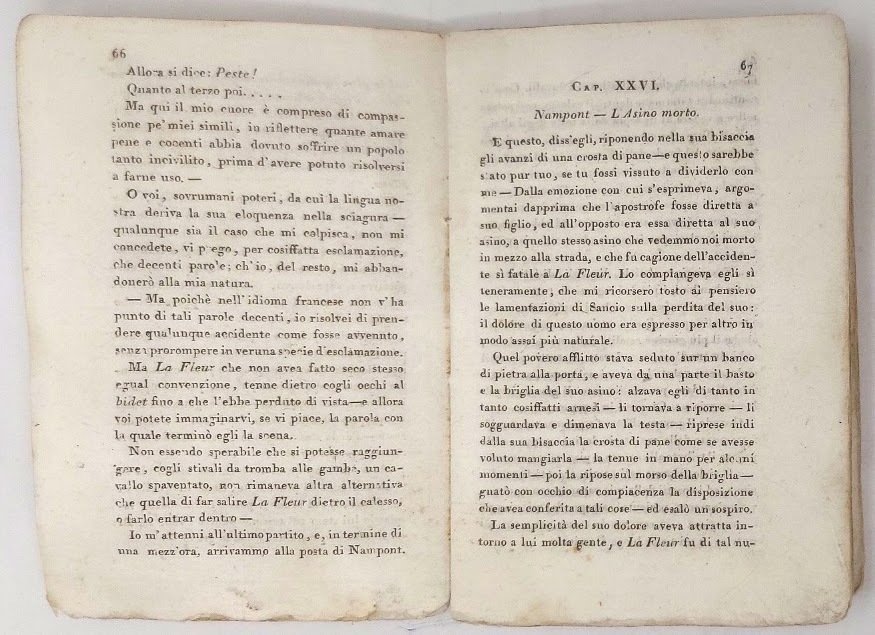 66
Allora si dice: Peste!
Quanto al terzo poi.....
Ma quì il mio cuore è compreso di compas-
sione pe' miei simili, in riflettere quante amare
pene e cocenti abbia dovuto soffrire un popolo
tanto incivilito, prima d'avere potuto risolversi
a farne uso. —
O voi, sovrumani poteri, da cui la lingua no-
stra deriva la sua eloquenza nella sciagura —
qualunque sia il caso che mi colpisca, non mi
concedete, vi prego, per cosiffatta esclamazione,
che decenti parole; ch'io, del resto, mi abban-
donerò alla mia natura.
— Ma poichè nell'idioma francese non v'ha
punto di tali parole decenti, io risolvei di pren-
dere qualunque accidente come fosse avvenuto,
senza prorompere in veruna specie d'esclamazione.
Ma La Fleur che non avea fatto seco stesso
egual convenzione, tenne dietro cogli occhi al
bidet fino a che l'ebbe perduto di vista—e allora
voi potete immaginarvi, se vi piace, la parola con
la quale terminò egli la scena.
Non essendo sperabile che si potesse raggiun-
gere, cogli stivali da tromba alle gambe, un ca-
vallo spaventato, non rimaneva altra alternativa
che quella di far salire La Fleur dietro il calesso,
o farlo entrar dentro —
Io m'attenni all'ultimo partito, e, in termine di
una mezz'ora, arrivammo alla posta di Nampont.
67
CAP. XXVI.
Nampont — L'Asino morto.
E questo, diss'egli, riponendo nella sua bisaccia
gli avanzi di una crosta di pane—e questo sarebbe
stato pur tuo, se tu fossi vissuto a dividerlo con
me — Dalla emozione con cui s'esprimeva, argo-
mentai dapprima che l'apostrofe fosse diretta a
suo figlio, ed all'opposto era essa diretta al suo
asino, a quello stesso asino che vedemmo noi morto
in mezzo alla strada, e che fu cagione dell'acciden-
te sì fatale a La Fleur. Lo compiangeva egli sì
teneramente, che mi ricorsero tosto al pensiero
le lamentazioni di Sancio sulla perdita del suo:
il dolore di questo uomo era espresso per altro in
modo assai più naturale.
Quel povero afflitto stava seduto sur un banco
di pietra alla porta, e aveva da una parte il basto
e la briglia del suo asino: alzava egli di tanto in
tanto cosiffatti arnesi — li tornava a riporre — li
sogguardava e dimenava la testa — riprese indi
dalla sua bisaccia la crosta di pane come se avesse
voluto mangiarla — la tenne in mano per alcuni
momenti — poi la ripose sul morso della briglia —
guatò con occhio di compiacenza la disposizione
che avea conferita a tali cose — ed esalò un sospiro.
La semplicità del suo dolore aveva attratta in-
torno a lui molta gente, e La Fleur fu di tal nu-